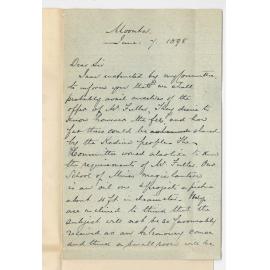 Moonta
June 7. 1898
Dear Sir
I am instructed by my Committee
to inform you that we shall
probably avail ourselves of the
offer of Mr Fuller, They desire to
know however the fee, and how
far this could be shared
by the Kadina people. The
Committee would also like to know
the requirements of Mr Fuller. Our
School of Mines magic lantern
is an oil one & projects a picture
about 10 ft in diameter. They
are inclined to think that the
subject will not be so favourably
received as an Astronomy one
and think a small room will be